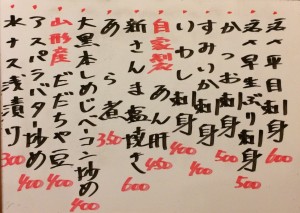 活〆平目刺身 600
活〆早生ぶり刺身 500
かつお刺身 500
すみいか刺身 400
いわし刺身 400
自家製 あん肝 450
新さんま塩焼き 600
あら煮 350
大黒本しめじベーコン炒め 400
山形産 だだちゃ豆 400
アスパラバター炒め 400
水ナス浅漬り 300